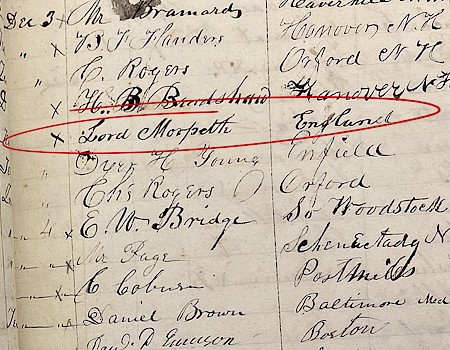 Dec 3 Mr Bramard Haverhill
" x B. T. Flanders Hanover N.H
" C. Rogers Orford N H
x H. B. Burdshaw Hanover N.H
x Lord Morpeth England
Dyer H Young Enfield
Chs Rogers Orford
" 4 x E. W. Bridge So Woodstock
" " x Mr Page Schenectady N
" " x C Coburn Postmills
" " x Daniel Brown Baltimore Med
David D Emerson Boston